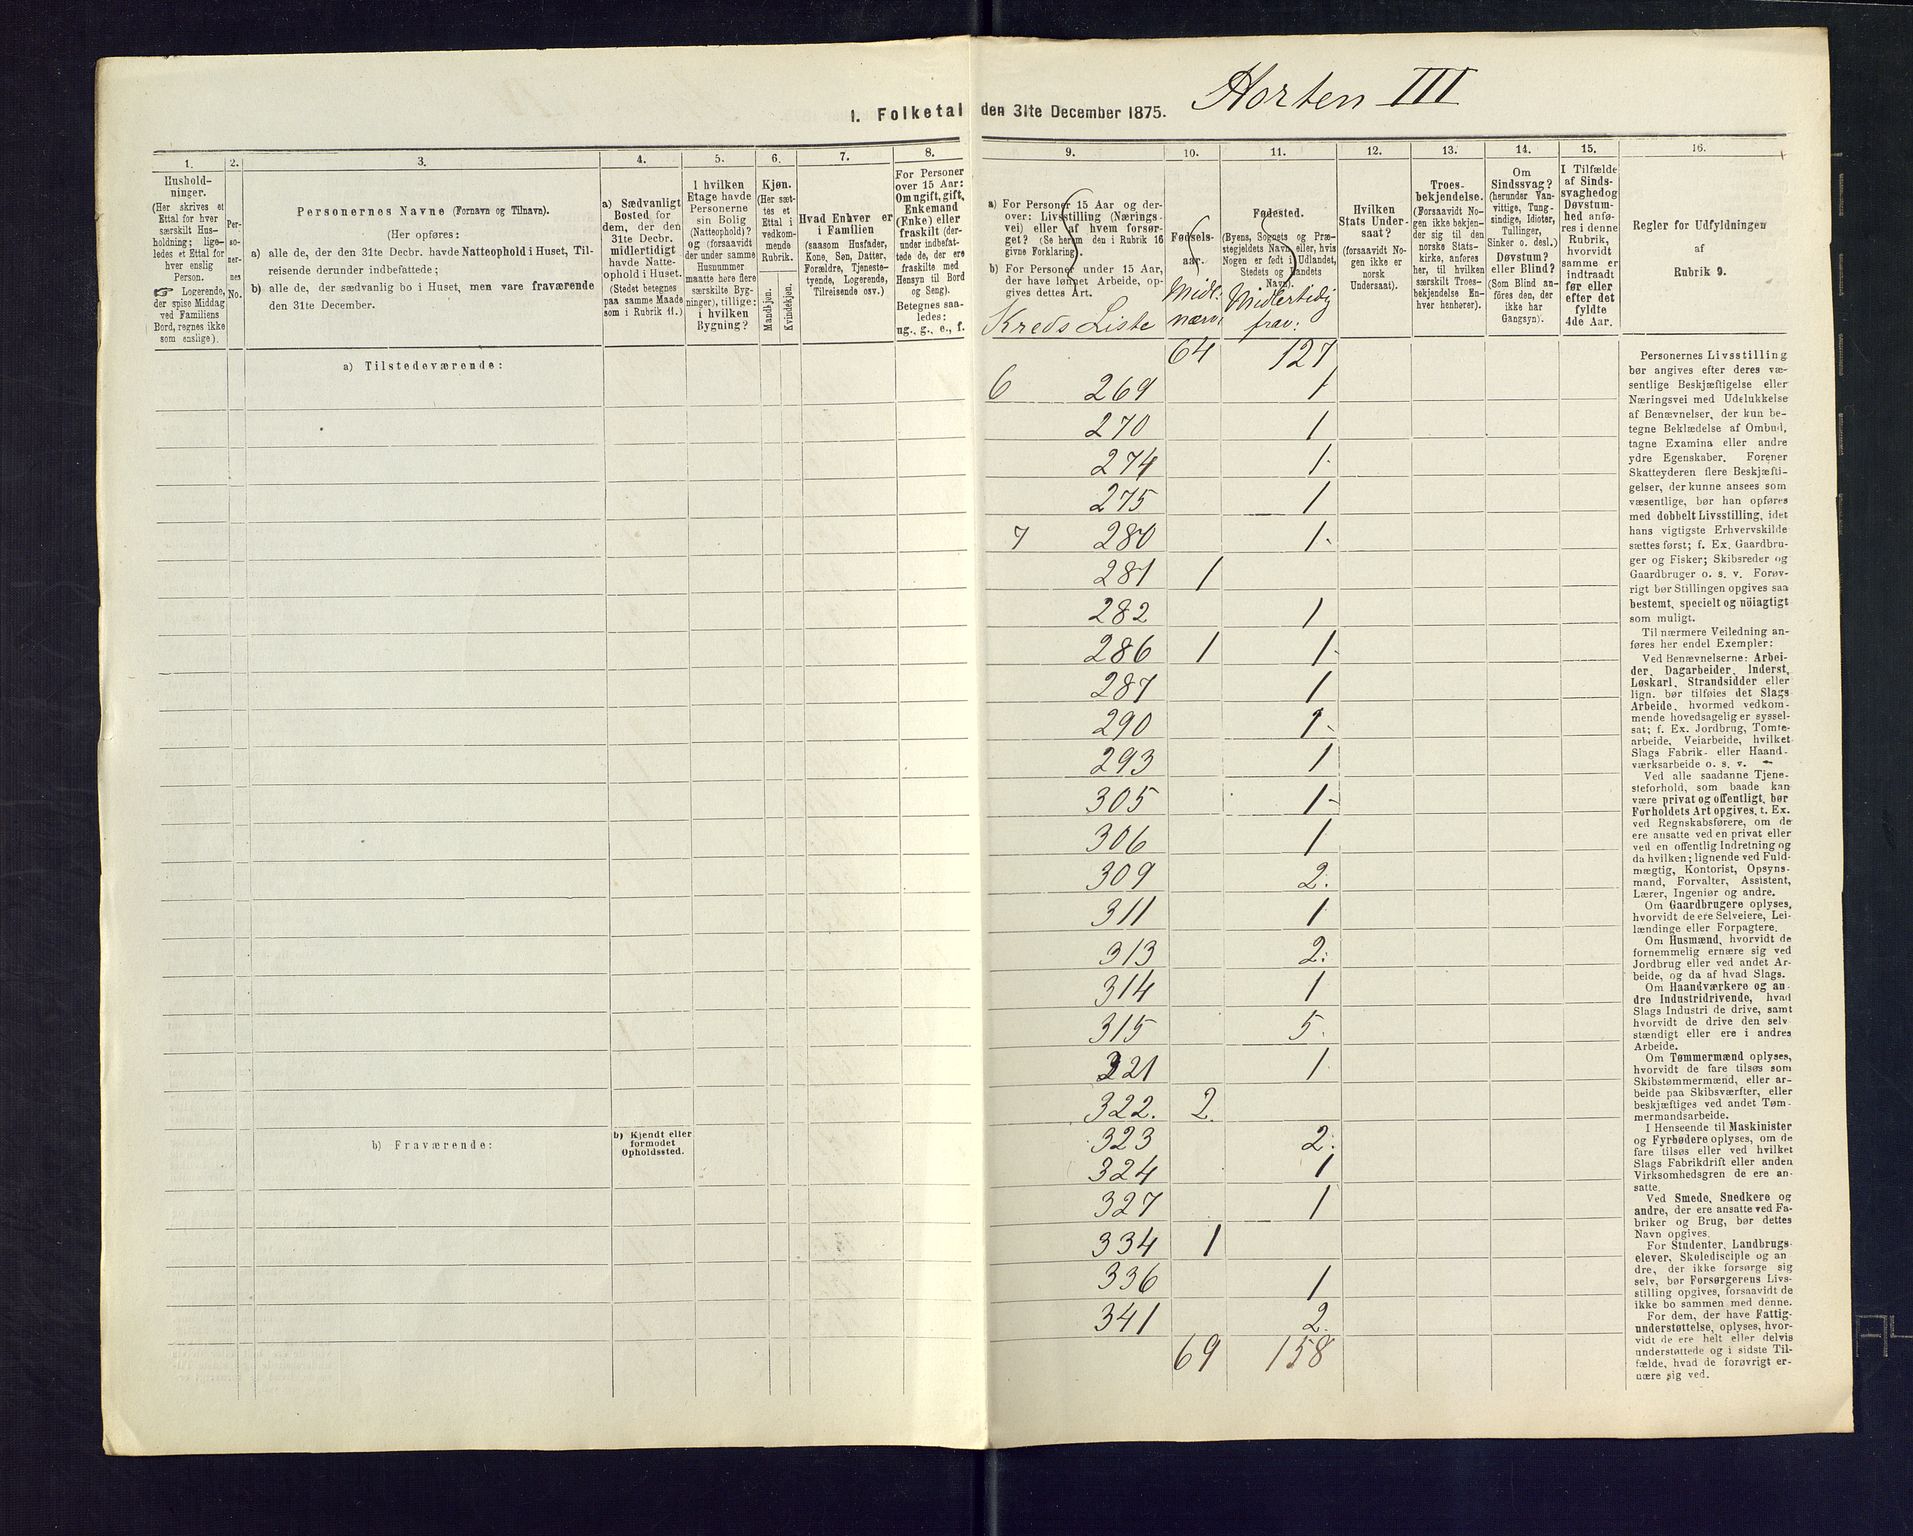 Horten III
1. Folketal den 31te December 1875.
1.
Hushold-
ninger.
(Her skrives et
Ettal for hver
særskilt Hus-
holdning; lige-
ledes et Ettal for
hver enslig
Person.
☞ Logerende,
der spise Middag
ved Familiens
Bord, regnes ikke
som enslige).
2.
Per-
so-
ner-
nes
No.
3.
Personernes Navne (Fornavn og Tilnavn).
(Her opføres:
a) alle de, der den 31te Decbr. havde Natteophold i Huset, Til-
reisende derunder indbefattede;
b) alle de, der sædvanlig bo i Huset, men vare fraværende
den 31te December.
4.
a) Sædvanligt
Bosted for
dem, der den
31te Decbr.
midlertidigt
havde Natte-
ophold i Huset.
(Stedet betegnes
paa samme Maade
som i Rubrik 11.)
5.
I hvilken
Etage havde
Personerne
sin Bolig
(Natteophold)?
og (forsaavidt
der under samme
Husnummer
maatte være flere
særskilte Byg-
ninger), tillige:
i hvilken
Bygning?
6.
Kjøn.
(Her sæt-
tes et
Ettal i
vedkom-
mende
Rubrik.
Mandkjøn.
Kvindekjøn.
7.
Hvad Enhver er
i Familien
(saasom Husfader,
Kone, Søn, Datter,
Forældre, Tjeneste-
tyende, Logerende,
Tilreisende osv.)
8.
For Personer
over 15 Aar:
Om ugift, gift,
Enkemand
(Enke) eller
fraskilt (der-
under indbefat-
tede de, der ere
fraskilte med
Hensyn til Bord
og Seng).
Betegnes saa-
ledes:
ug., g., e., f.
9.
a) For Personer 15 Aar og der-
over: Livsstilling (Nærings-
vei) eller af hvem forsør-
get? (Se herom den i Rubrik 16
givne Forklaring).
b) For Personer under 15 Aar,
der have lønnet Arbeide, op-
gives dettes Art.
Kreds Liste
10.
Fødsels-
aar.
Midl:
nærv:
11.
Fødested.
(Byens, Sognets og Præ-
stegjeldets Navn, eller, hvis
Nogen er født i Udlandet,
Stedets og Landets
Navn).
Midlertidig
frav:
12.
Hvilken
Stats Under-
saat?
(forsaavidt No-
gen ikke er
norsk
Undersaat).
13.
Troes-
bekjendelse.
(Forsaavidt No-
gen ikke bekjen-
der sig til den
norske Stats-
kirke, anføres
her, til hvilken
særskilt Troes-
bekjendelse En-
hver henhører).
14.
Om
Sindssvag?
(herunder Van-
vittige, Tung-
sindige, Idioter,
Tullinger,
Sinker o. desl.)
Døvstum?
eller Blind?
(Som Blind an-
føres den, der
ikke har
Gangsyn).
15.
I Tilfælde
af Sinds-
svaghed og
Døvstum-
hed anfø-
res i denne
Rubrik,
hvorvidt
samme er
indtraadt
før eller
efter det
fyldte
4de Aar.
16.
Regler for Udfyldningen
af
Rubrik 9.
a) Tilstedeværende:
64 127
6 269 1
270 1
274 1
275 1
7 280 1
281 1
282 1
286 1 1
287 1
290 1
293 1
305 1
306 1
309 2
311 1
313 2
314 1
315 5
321 1
322. 2
323 2
324 1
327 1
334 1
336 1
341 2
69 158
b) Fraværende:
b) Kjendt eller
formodet
Opholdssted.
Personernes Livsstilling
bør angives efter deres væ-
sentlige Beskjæftigelse eller
Næringsvei med Udelukkelse
af Benævnelser, der kun be-
tegne Beklædelse af Ombud,
tagne Examina eller andre
ydre Egenskaber. Forener
Skatteyderen flere Beskjæfti-
gelser, der kunne ansees som
væsentlige, bør han opføres
med dobbelt Livsstilling, idet
hans vigtigste Erhvervskilde
sættes først; f. Ex. Gaardbru-
ger og Fisker; Skibsreder og
Gaardbruger o. s. v. Forøv-
rigt bør Stillingen opgives saa
bestemt, specielt og nöiagtigt
som muligt.
Til nærmere Veiledning an-
føres her endel Exempler:
Ved Benævnelserne: Arbei-
der, Dagarbeider, Inderst,
Løskarl, Strandsidder eller
lign. bør tilføies det Slags
Arbeide, hvormed vedkom-
mende hovedsagelig er syssel-
sat; f. Ex. Jordbrug, Tomte-
arbeide, Veiarbeide, hvilket
Slags Fabrik- eller Haand-
værksarbeide o. s. v.
Ved alle saadanne Tjene-
steforhold, som baade kan
være privat og offentligt, bør
Forholdets Art opgives, t. Ex.
ved Regnskabsførere, om de
ere ansatte ved en privat eller
ved en offentlig Indretning og
da hvilken; lignende ved Fuld-
mægtig, Kontorist, Opsyns-
mand, Forvalter, Assistent,
Lærer, Ingeniør og andre.
Om Gaardbrugere oplyses,
hvorvidt de ere Selveiere, Lei-
lændinge eller Forpagtere.
Om Husmænd, hvorvidt de
fornemmelig ernære sig ved
Jordbrug eller ved andet Ar-
beide, og da af hvad Slags.
Om Haandværkere og an-
dre Industridrivende, hvad
Slags Industri de drive, samt
hvorvidt de drive den selv-
stændigt eller ere i andres
Arbeide.
Om Tømmermænd oplyses,
hvorvidt de fare tilsøs som
Skibstømmermænd, eller ar-
beide paa Skibsværfter, eller
beskjæftiges ved andet Tøm-
mermandsarbeide.
I Henseende til Maskinister
og Fyrbødere oplyses, om de
fare tilsøs eller ved hvilket
Slags Fabrikdrift eller anden
Virksomhedsgren de ere an-
satte.
Ved Smede, Snedkere og
andre, der ere ansatte ved Fa-
briker og Brug, bør dettes
Navn opgives.
For Studenter, Landbrugs-
elever, Skoledisciple og an
dre, der ikke forsørge sig
selv, bør Forsørgerens Livs-
stilling opgives, forsaavidt de
ikke bo sammen med denne.
For dem, der have Fattig-
understøttelse, oplyses, hvor-
vidt de ere helt eller delvis
understøttede og i sidste Til-
fælde, hvad de forøvrigt er-
nære sig ved.